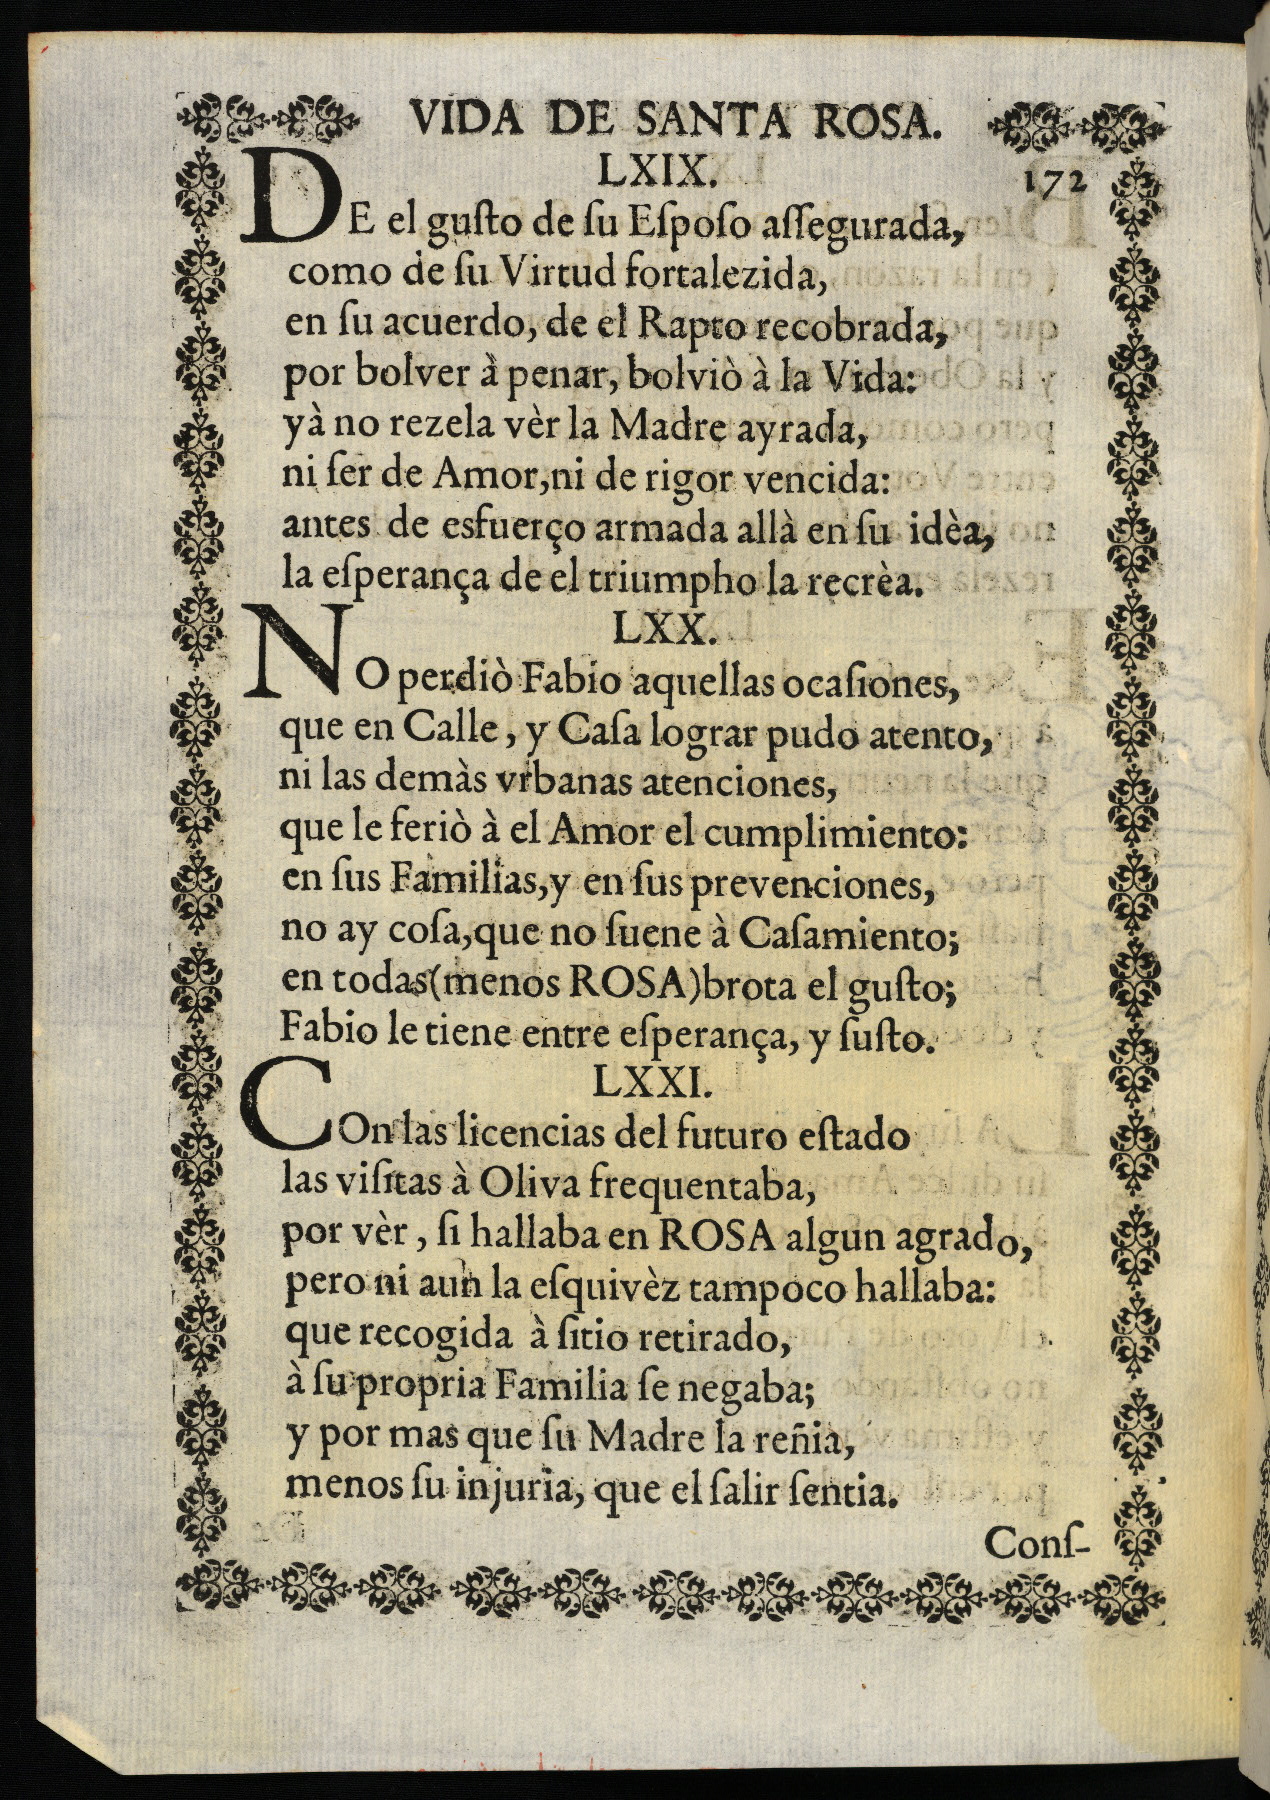 VIDA DE SANTA ROSA.
LXIX.
172
DE el guſto de ſu Eſpoſo aſſegurada,
como de ſu Virtud fortalezida,
en ſu acuerdo, de el Rapto recobrada,
por bolver à penar, bolviò à la Vida:
yà no rezela vèr la Madre ayrada,
ni ſer de Amor, ni de rigor vencida:
antes de esfuerço armada allà en ſu idèa,
la eſperança de el triumpho la recrèa.
LXX.
NO perdiò Fabio aquellas ocaſiones,
que en Calle, y Caſa lograr pudo atento,
ni las demàs vrbanas atenciones,
que le feriò à el Amor el cumplimiento:
en ſus Familias, y en ſus prevenciones,
no ay coſa, que no ſuene à Caſamiento;
en todas (menos ROSA) brota el guſto;
Fabio le tiene entre eſperança, y ſuſto.
LXXI.
COn las licencias del futuro eſtado
las viſitas à Oliva frequentaba,
por vèr, ſi hallaba en ROSA algun agrado,
pero ni aun la eſquivèz tampoco hallaba:
que recogida à ſitio retirado,
à ſu propria Familia ſe negaba;
y por mas que ſu Madre la reñia,
menos ſu injuria, que el ſalir ſentia.
Conſ-